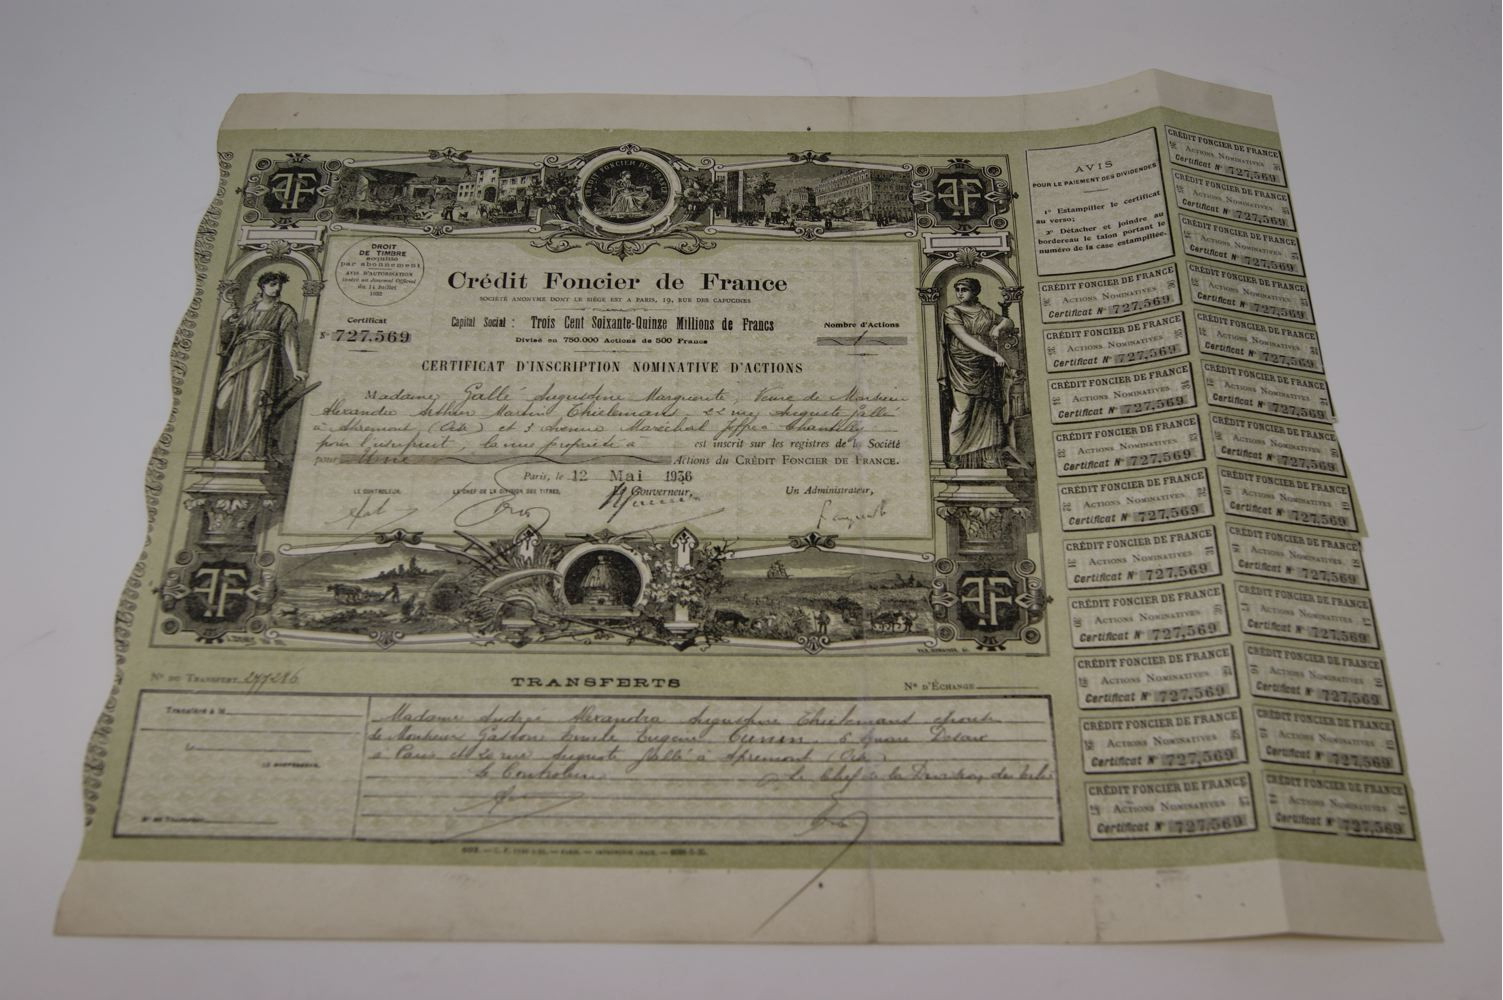 CRÉDIT FONCIER DE FRANCE
DROIT
DE TIMBRE
acquitté
par abonnement
AVIS D'AUTORISATION
inséré au Journal Officiel
du 14 Juillet
Crédit Foncier de France
SOCIÉTÉ ANONYME DONT LE SIÈGE EST A PARIS, 19, RUE DES CAPUCINES
Certificat
N° 727.569
Capital Social : Trois Cent Soixante-Quinze Millions de Francs
Divisé en 750.000 Actions de 500 Francs
Nombre d'Actions
1
CERTIFICAT D'INSCRIPTION NOMINATIVE D'ACTIONS
Madame Gallé Augustine Marguerite, Veuve de Monsieur
Alexandre Arthur Martin Thielemans, 22 rue Auguste Gallé
à Apremont (Oise) et 3 Avenue Maréchal Joffre à Chantilly
pour l'usufruit, la nue propriété à est inscrit sur les registres de la Société
pour Une Actions du CRÉDIT FONCIER DE FRANCE.
Paris, le 12 Mai 1936
LE CONTROLEUR,
LE CHEF DE LA DIVISION DES TITRES,
Gouverneur,
Un Administrateur,
N° DU TRANSFERT 277286
TRANSFERTS
N° D'ÉCHANGE
Transféré à M
Madame Andrée Alexandra Augustine Thielemans épouse
de Monsieur Gaston Emile Eugène 6 Square Desaix
à Paris et 22 rue Auguste Gallé à Apremont (Oise)
Le Controleur
Le Chef de la Division des Titres
AVIS
POUR LE PAIEMENT DES DIVIDENDES
1° Estampiller le certificat
au verso;
2° Détacher et joindre au
bordereau le talon portant le
numéro de la case estampillée.
CRÉDIT FONCIER DE FRANCE
ACTIONS NOMINATIVES
Certificat N° 727,569
CRÉDIT FONCIER DE FRANCE
ACTIONS NOMINATIVES
Certificat N° 727,569
CRÉDIT FONCIER DE FRANCE
ACTIONS NOMINATIVES
Certificat N° 727,569
CRÉDIT FONCIER DE FRANCE
ACTIONS NOMINATIVES
Certificat N° 727,569
CRÉDIT FONCIER DE FRANCE
ACTIONS NOMINATIVES
Certificat N° 727,569
CRÉDIT FONCIER DE FRANCE
ACTIONS NOMINATIVES
Certificat N° 727,569
CRÉDIT FONCIER DE FRANCE
ACTIONS NOMINATIVES
Certificat N° 727,569
CRÉDIT FONCIER DE FRANCE
ACTIONS NOMINATIVES
Certificat N° 727,569
CRÉDIT FONCIER DE FRANCE
ACTIONS NOMINATIVES
Certificat N° 727,569
CRÉDIT FONCIER DE FRANCE
ACTIONS NOMINATIVES
Certificat N° 727,569
CRÉDIT FONCIER DE FRANCE
ACTIONS NOMINATIVES
Certificat N° 727,569
CRÉDIT FONCIER DE FRANCE
ACTIONS NOMINATIVES
Certificat N° 727,569
CRÉDIT FONCIER DE FRANCE
ACTIONS NOMINATIVES
Certificat N° 727,569
CRÉDIT FONCIER DE FRANCE
ACTIONS NOMINATIVES
Certificat N° 727,569
CRÉDIT FONCIER DE FRANCE
ACTIONS NOMINATIVES
Certificat N° 727,569
CRÉDIT FONCIER DE FRANCE
ACTIONS NOMINATIVES
Certificat N° 727,569
CRÉDIT FONCIER DE FRANCE
ACTIONS NOMINATIVES
Certificat N° 727,569
CRÉDIT FONCIER DE FRANCE
ACTIONS NOMINATIVES
Certificat N° 727,569
CRÉDIT FONCIER DE FRANCE
ACTIONS NOMINATIVES
Certificat N° 727,569
CRÉDIT FONCIER DE FRANCE
ACTIONS NOMINATIVES
Certificat N° 727,569
CRÉDIT FONCIER DE FRANCE
ACTIONS NOMINATIVES
Certificat N° 727,569